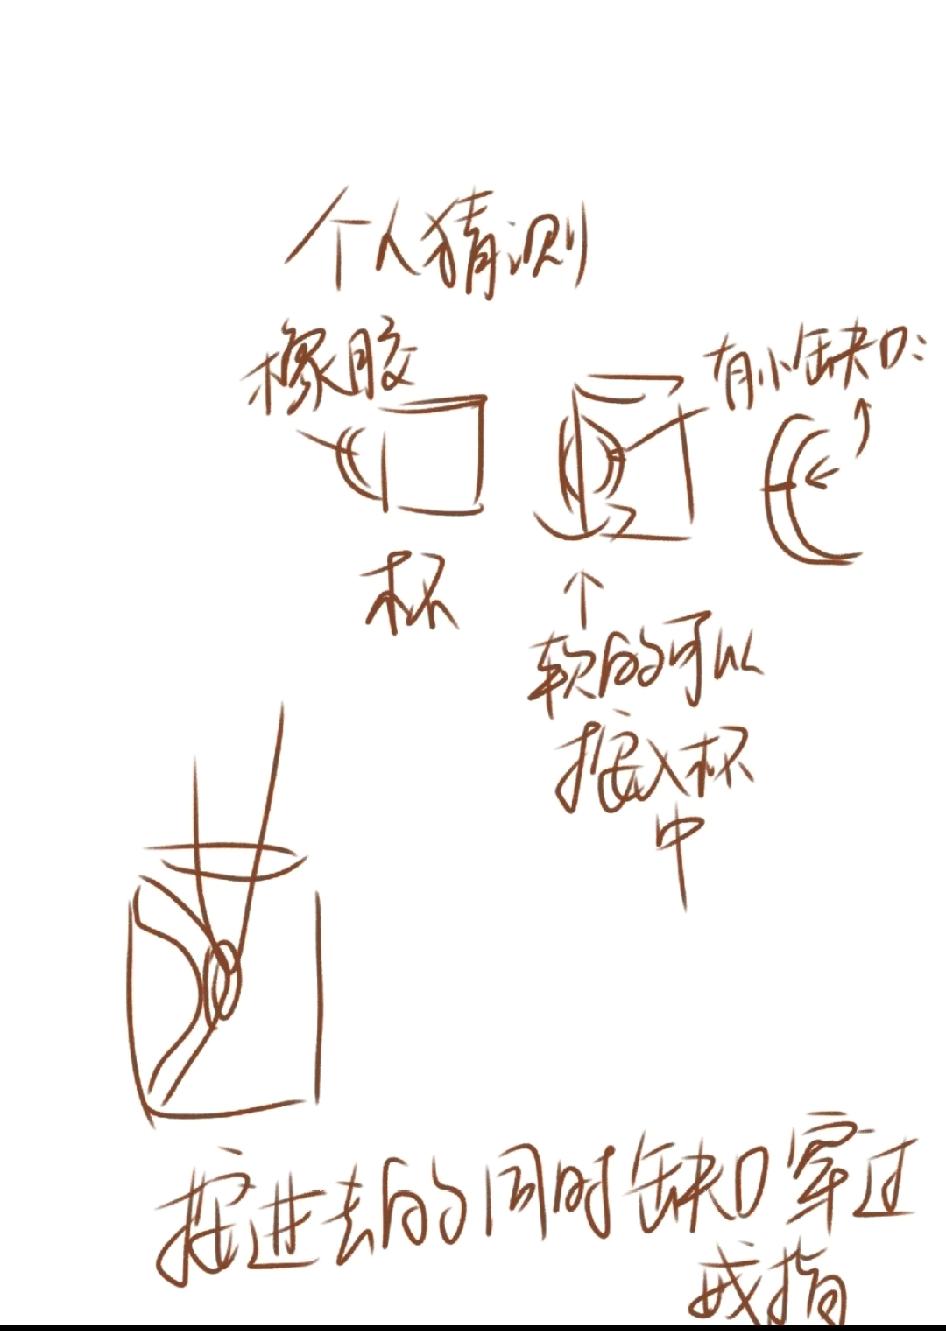 个人猜测
橡胶
有小缺口:
杯
软的可以
按入杯
中
按进去的同时缺口穿过
戒指